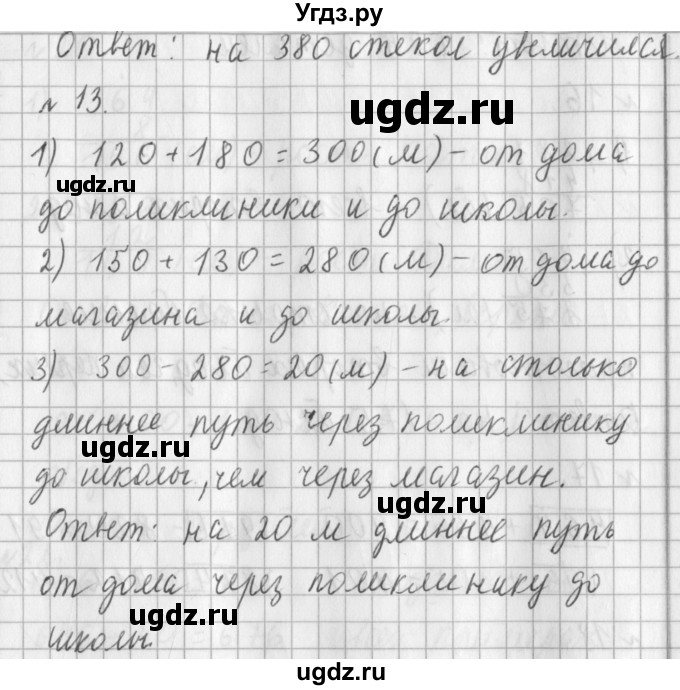 Угдз.ру
Ответ: на 380 стекол увеличился.
№ 13.
ugdz.ru
1) 120 + 180 = 300 (м) – от дома
ugdz.ru
до поликлиники и до школы.
2) 150 + 130 = 280 (м) – от дома до
магазина и до школы.
3) 300 – 280 = 20 (м) – на столько
длиннее путь через поликлинику
ugdz.ru
до школы, чем через магазин.
ugdz.ru
Ответ: на 20 м длиннее путь
от дома через поликлинику до
ugdz.ru
школы.
ugdz.ru